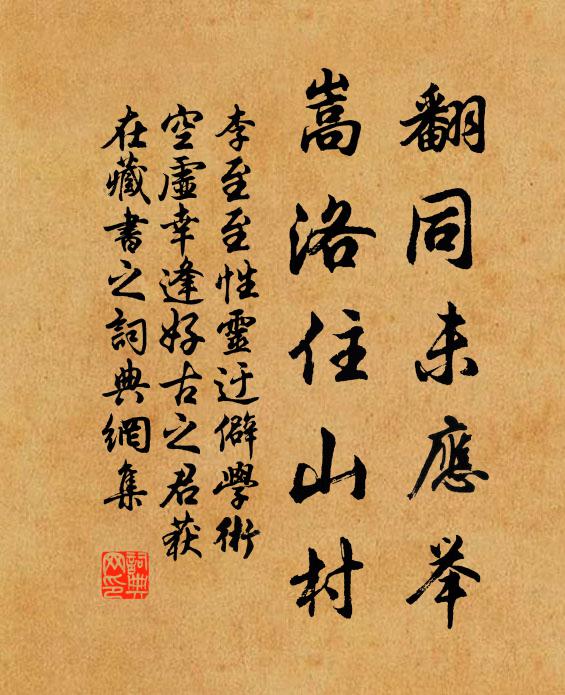 翻同未應举
嵩洛住山村
李至至性靈迂僻學術
空虛幸逢好古之君获
在藏書之詞典網集
詞典
网印